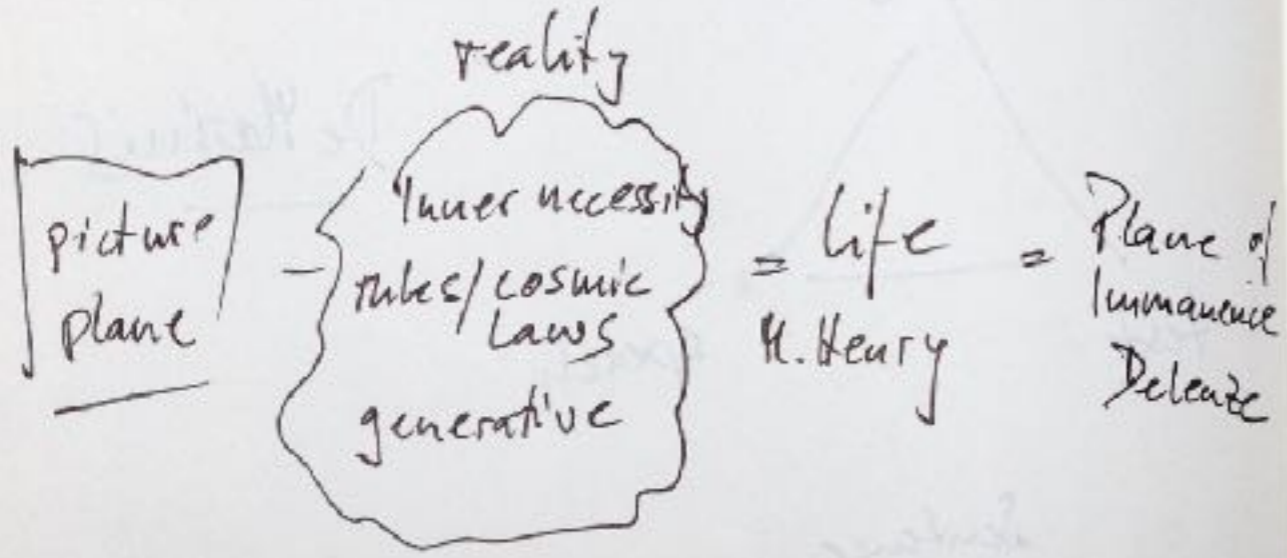 reality
picture
plane
–
Inner necessity
rules/cosmic
Laws
generative
= Life
M. Henry
= Plane of
Immanence
Deleuze